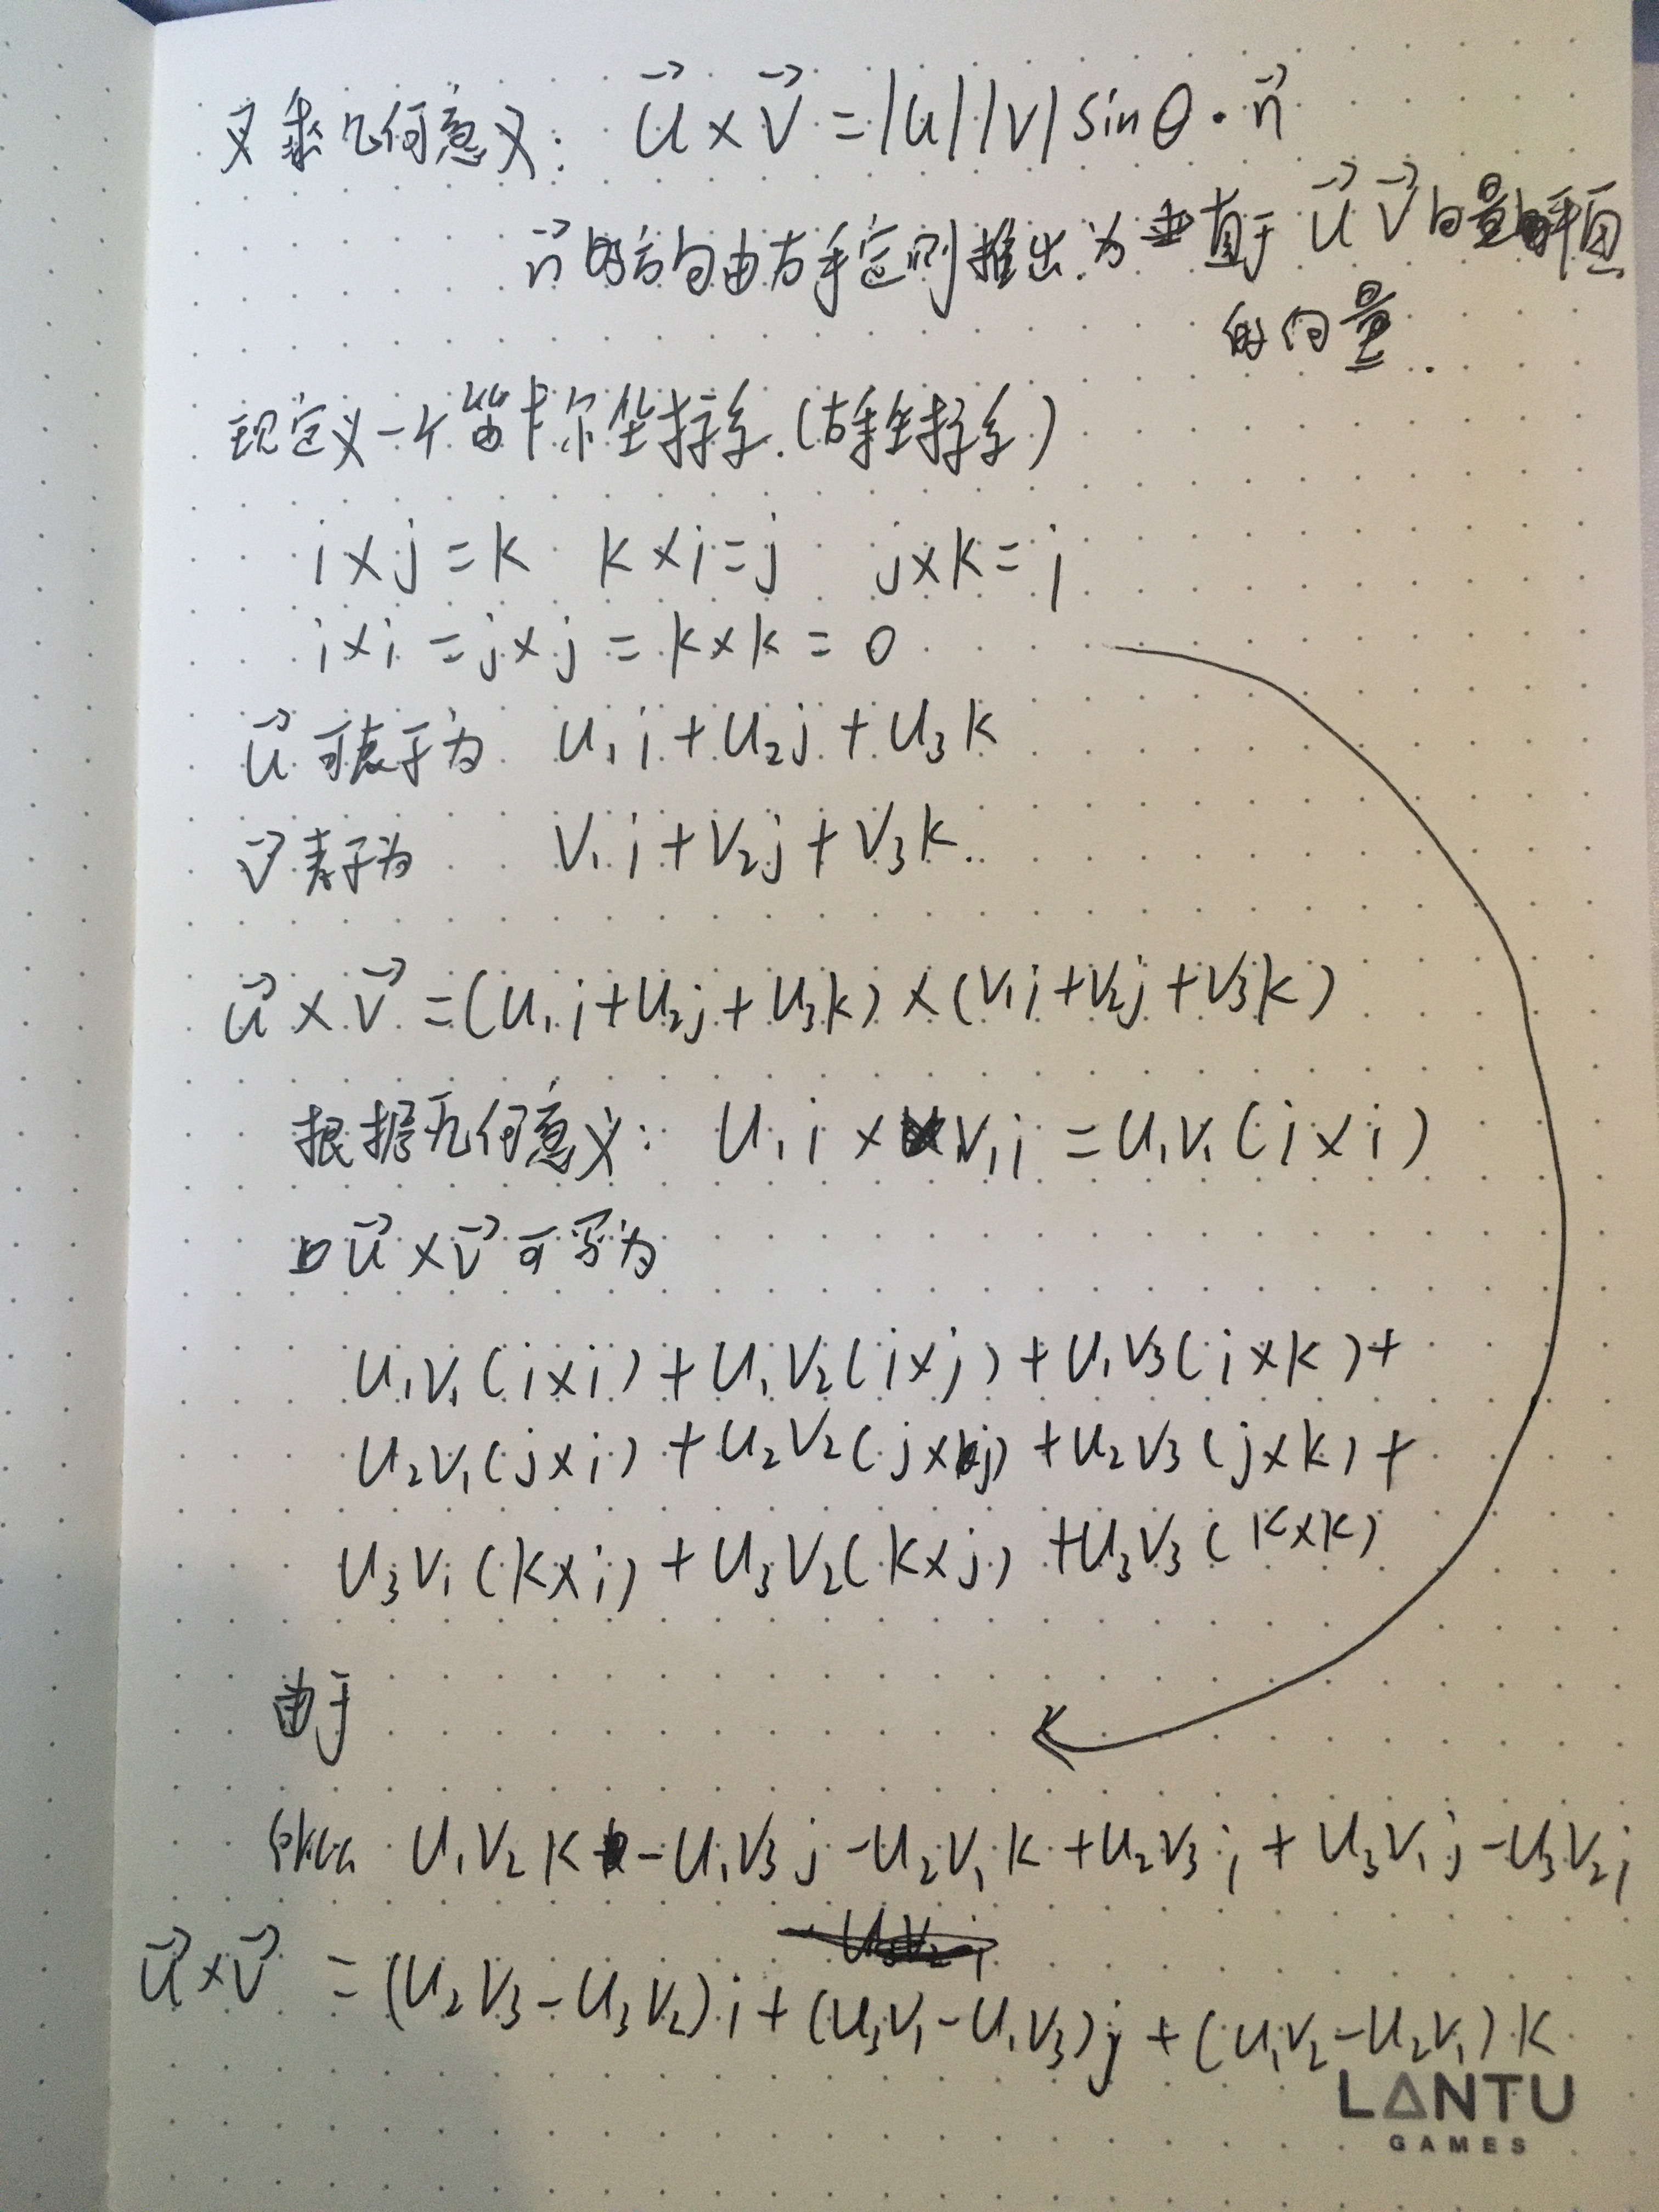 叉乘几何意义: u⃗ × v⃗ = |u||v| sinθ · n⃗
n⃗ 的方向由右手定则推出.为垂直于 u⃗ v⃗ 向量平面
的向量.
现定义一个笛卡尔坐标系.(右手坐标系)
i × j = k k × i = j j × k = i
i × i = j × j = k × k = 0
u⃗ 可表示为 u₁i + u₂j + u₃k
v⃗ 表示为 v₁i + v₂j + v₃k.
u⃗ × v⃗ = (u₁i + u₂j + u₃k) × (v₁i + v₂j + v₃k)
根据几何意义: u₁i × v₁i = u₁v₁(i × i)
u⃗ × v⃗ 可写为
u₁v₁(i×i) + u₁v₂(i×j) + u₁v₃(i×k) +
u₂v₁(j×i) + u₂v₂(j×j) + u₂v₃(j×k) +
u₃v₁(k×i) + u₃v₂(k×j) + u₃v₃(k×k)
由于
u₁v₂k - u₁v₃j - u₂v₁k + u₂v₃i + u₃v₁j - u₃v₂i
u⃗ × v⃗ = (u₂v₃ - u₃v₂)i + (u₃v₁ - u₁v₃)j + (u₁v₂ - u₂v₁)k
LANTU
GAMES